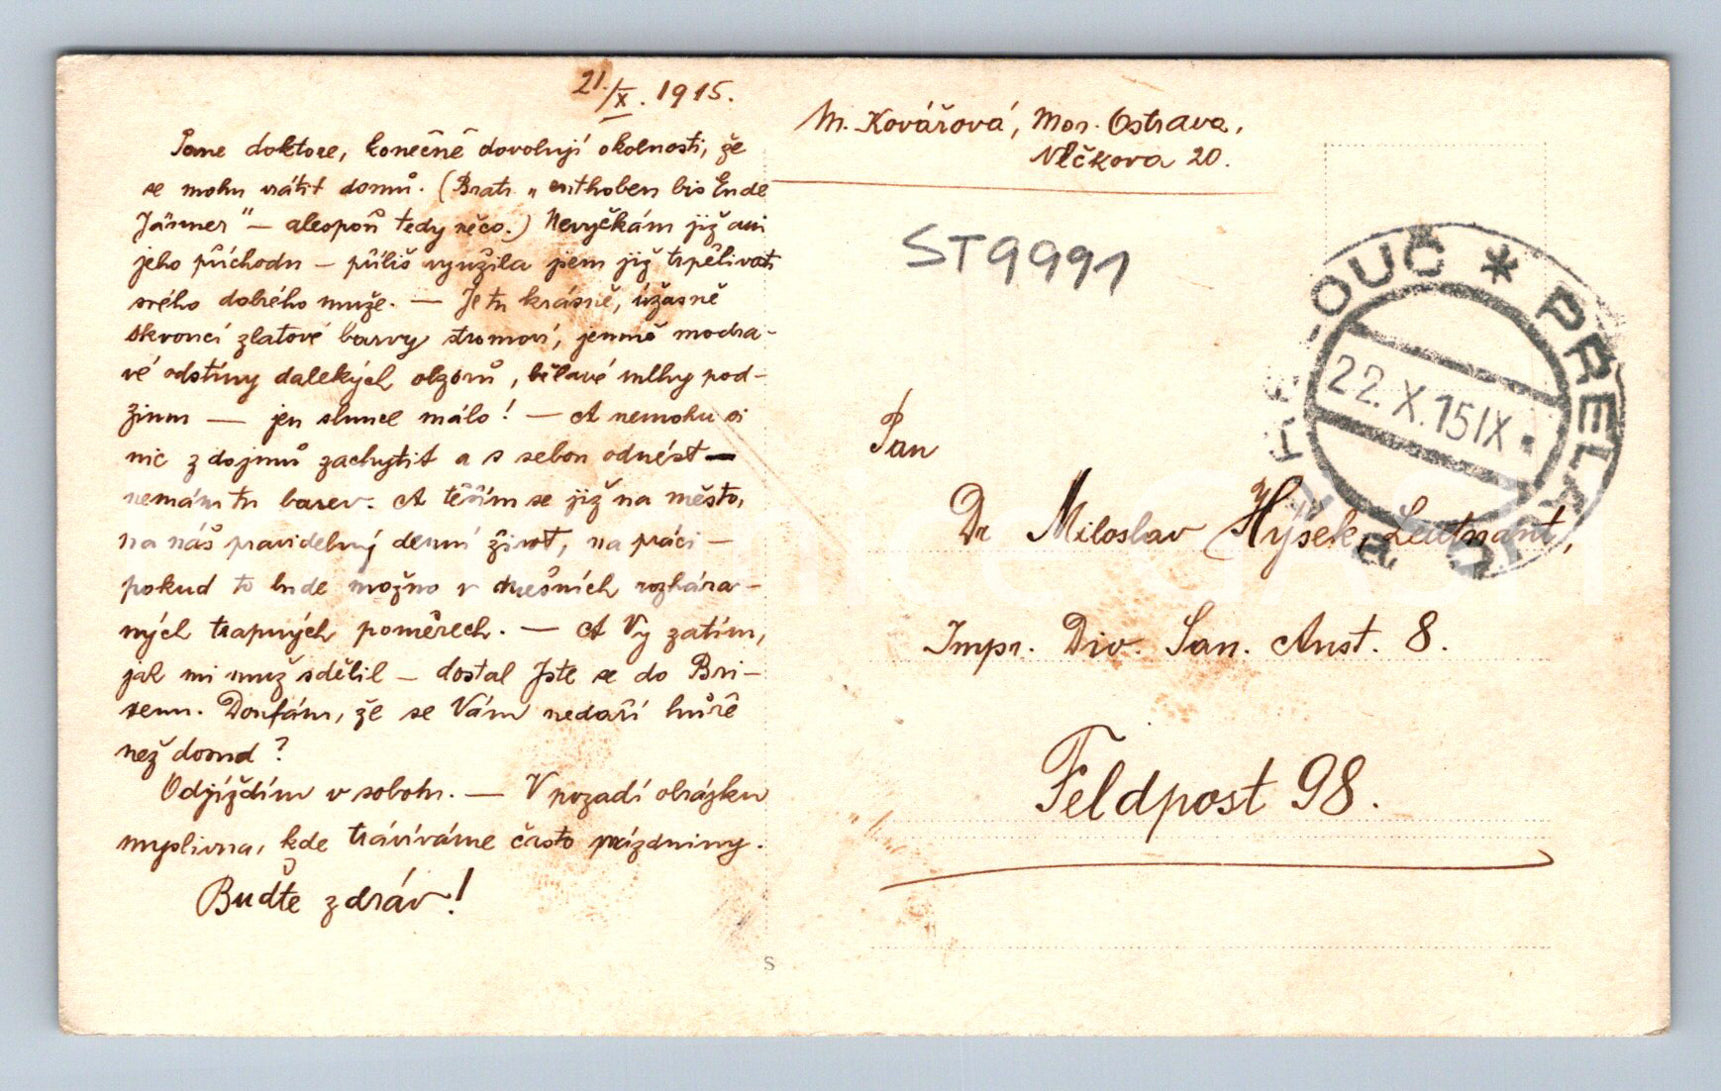 21./X. 1915.
Pane doktore, konečně dovolují okolnosti, že
se mohu vrátit domů. (Bratr „enthoben bis Ende
Jänner" — alespoň tedy něco.) Nevyčkám již ani
jeho příchodu — příliš využila jsem již trpělivosti
svého dobrého muže. — Je tu krásně, úžasně
skvoucí zlatové barvy stromoví, jemně modra-
vé odstíny dalekých obzorů, bělavé mlhy pod-
zimu — jen slunce málo! — A nemohu si
nic z dojmů zachytit a s sebou odnést —
nemám tu barev. A těším se již na město,
na náš pravidelný denní život, na práci —
pokud to bude možno v dnešních rozhára-
ných trapných poměrech. — A Vy zatím,
jak mi muž sdělil — dostal jste se do Bri-
xenu. Doufám, že se Vám nedaří hůře
než doma?
Odjíždím v sobotu. — V pozadí obrázku
myslivna, kde trávíváme často prázdniny.
Buďte zdráv!
M. Kovářová, Mor. Ostrava,
Vlčkova 20.
ST9991
PŘELOUČ * PRELAUC
22. X. 15 IX
Pan
Dr Miloslav Hýsek, Leutnant,
Impr. Div. San. Anst. 8.
Feldpost 98.
S